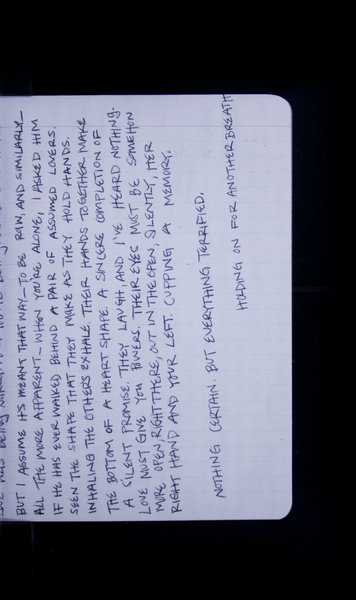 BUT I ASSUME IT'S MEANT THAT WAY_ TO BE RAW, AND SIMILARLY_
ALL THE MORE APPARENT_ WHEN YOU'RE ALONE, I ASKED HIM
IF HE HAS EVER WALKED BEHIND A PAIR OF ASSUMED LOVERS.
SEEN THE SHAPE THAT THEY MAKE AS THEY HOLD HANDS.
INHALING THE OTHERS EXHALE. THEIR HANDS TOGETHER MAKE
THE BOTTOM OF A HEART SHAPE. A SINCERE COMPLETION OF
A SILENT PROMISE. THEY LAUGH, AND I'VE HEARD NOTHING.
LOVE MUST GIVE YOU POWERS. THEIR EYES MUST BE SOMEHOW
MORE OPEN, RIGHT THERE, OUT IN THE OPEN, SILENTLY, HER
RIGHT HAND AND YOUR LEFT. CUPPING A MEMORY.
NOTHING CERTAIN. BUT EVERYTHING TERRIFIED.
HOLDING ON FOR ANOTHER BREATH